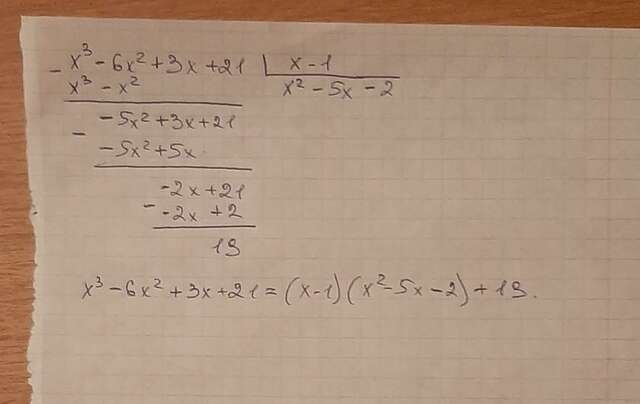 - x³ - 6x² + 3x + 21 | x - 1
x³ - x² x² - 5x - 2
- -5x² + 3x + 21
-5x² + 5x
- -2x + 21
-2x + 2
19
x³ - 6x² + 3x + 21 = (x-1)(x² - 5x - 2) + 19.